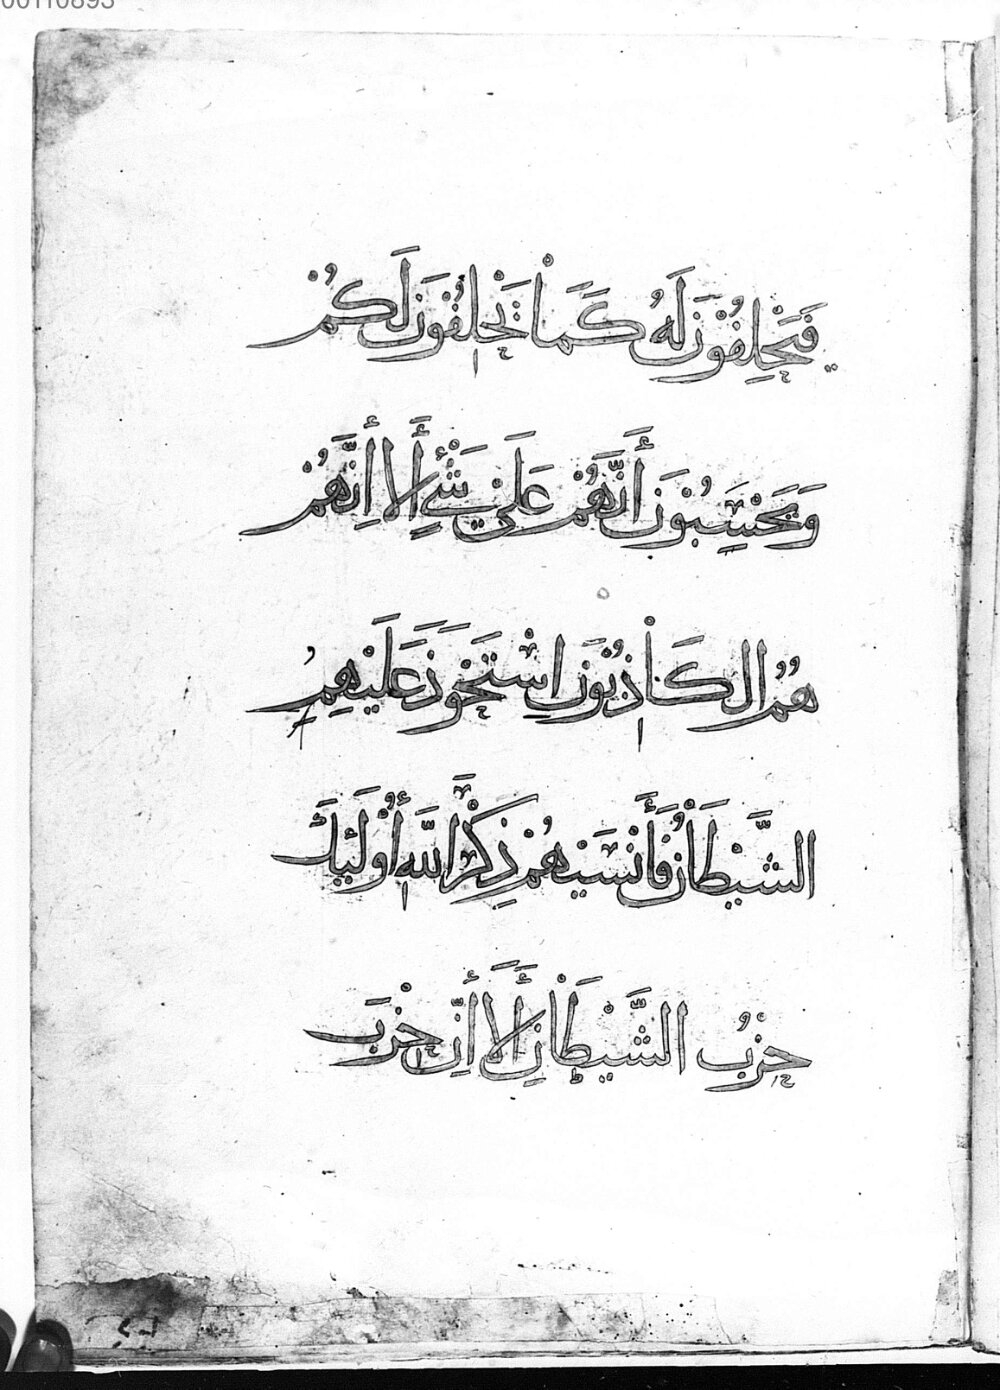 00110893
فَيَحْلِفُونَ لَهُ كَمَا يَحْلِفُونَ لَكُمْ
وَيَحْسَبُونَ أَنَّهُمْ عَلَىٰ شَيْءٍ أَلَا إِنَّهُمْ
هُمُ الْكَاذِبُونَ اسْتَحْوَذَ عَلَيْهِمُ
الشَّيْطَانُ فَأَنسَيٰهُمْ ذِكْرَ اللَّهِ أُولَٰئِكَ
حِزْبُ الشَّيْطَانِ أَلَا إِنَّ حِزْبَ